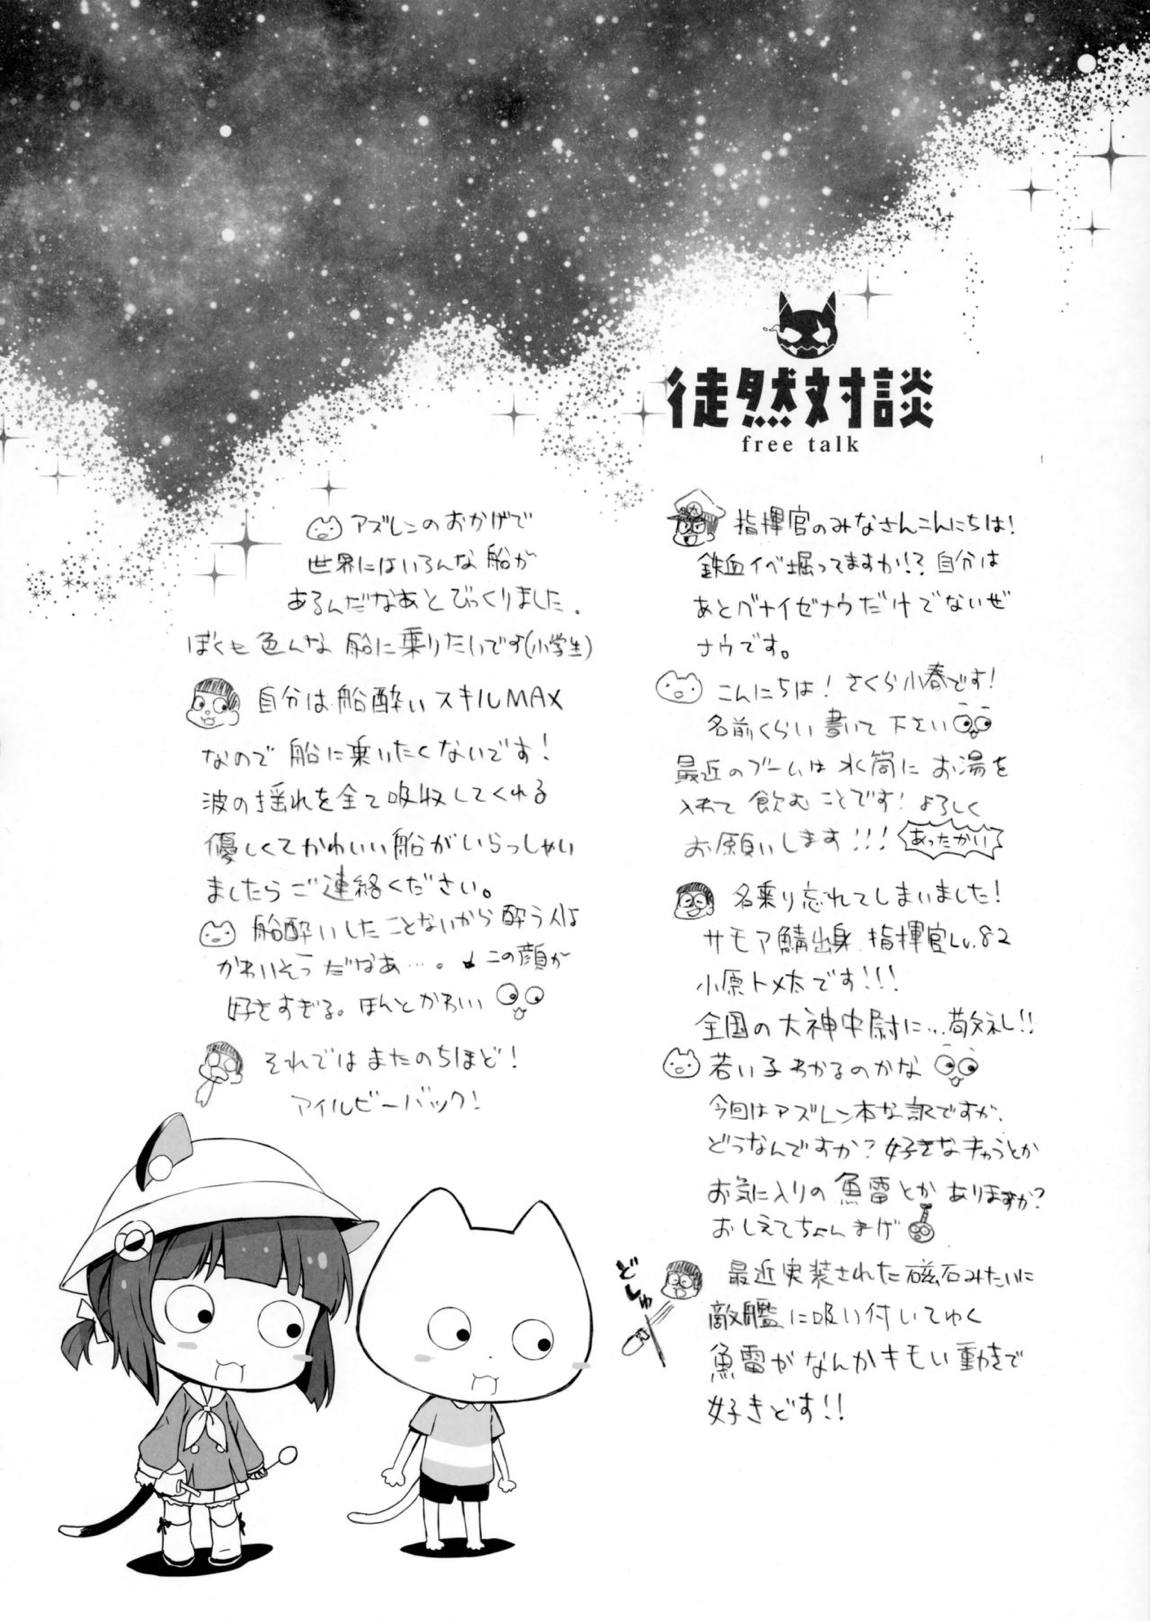 徒然対談
free talk
指揮官のみなさんこんにちは!
鉄血イベ掘ってますか!?自分は
あとグナイゼナウだけでないぜ
ナウです。
こんにちは!さくら小春です!
名前くらい書いて下さい
最近のブームは水筒にお湯を
入れて飲むことです!よろしく
お願いします!!!
あったかい
名乗り忘れてしまいました!
サモア鯖出身 指揮官Lv.82
小原トメ太です!!!
全国の大神中尉に…敬礼!!
若い子わかるのかな
今回はアズレン本な訳ですが、
どうなんですか?好きなキャラとか
お気に入りの魚雷とかありますか?
おしえてちょんまげ
最近実装された磁石みたいに
敵艦に吸い付いてゆく
魚雷がなんかキモい動きで
好きどす!!
どしゅ
アズレンのおかげで
世界にはいろんな船が
あるんだなあとびっくりました。
ぼくも色んな船に乗りたいです(小学生)
自分は船酔いスキルMAX
なので船に乗りたくないです!
波の揺れを全て吸収してくれる
優しくてかわいい船がいらっしゃい
ましたらご連絡ください。
船酔いしたことないから酔う人は
かわいそうだなあ…。
この顔が
好きすぎる。ほんとかわいい
それではまたのちほど!
アイルビーバック!